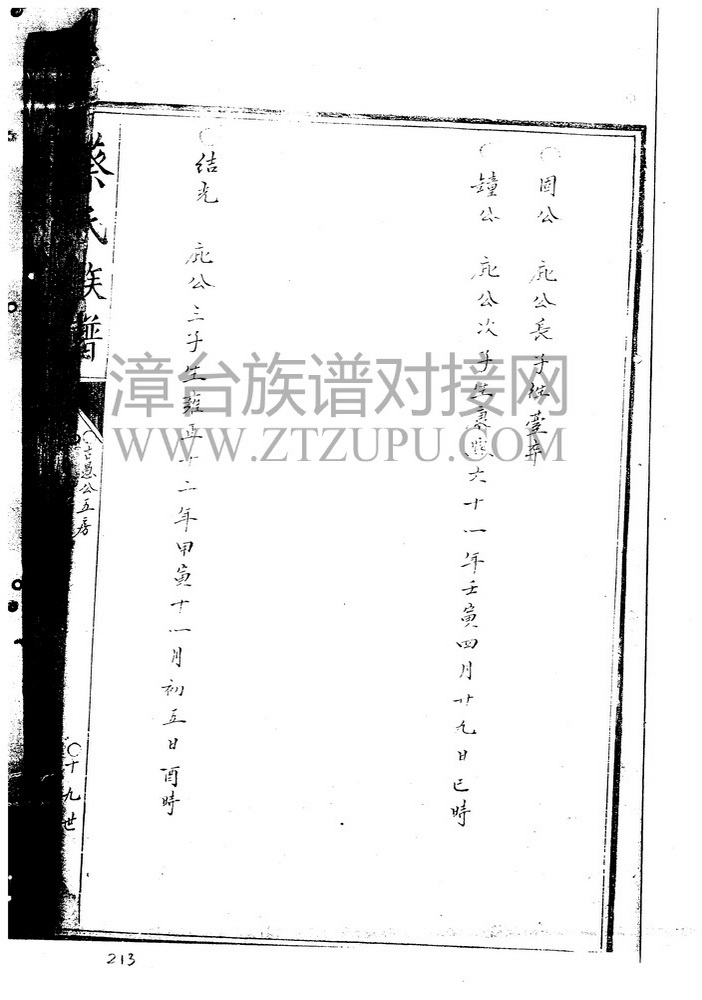 〇囯公 庇公長子往臺卒
〇鐘公 庇公次子生康熙六十一年壬寅四月廿九日巳時
〇結光 庇公三子生雍正十二年甲寅十一月初五日酉時
蔡氏族譜
〇古愚公五房
〇十九世
漳台族谱对接网
WWW.ZTZUPU.COM
213